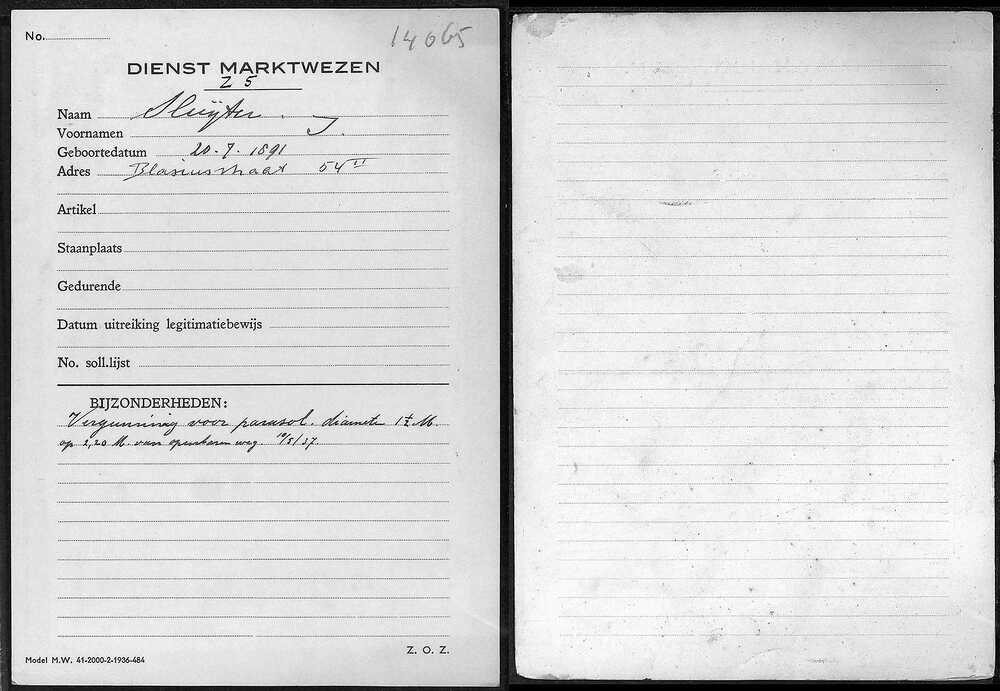 No.
14665
DIENST MARKTWEZEN
Z 5
Naam Sluijter.
Voornamen J.
Geboortedatum 20-7-1891
Adres Blasiusstraat 54 II
Artikel
Staanplaats
Gedurende
Datum uitreiking legitimatiebewijs
No. soll.lijst
BIJZONDERHEDEN:
Vergunning voor parasol. diameter M.
op 2,20 M. van openbaren weg 10/5/37.
Z. O. Z.
Model M.W. 41-2000-2-1936-484